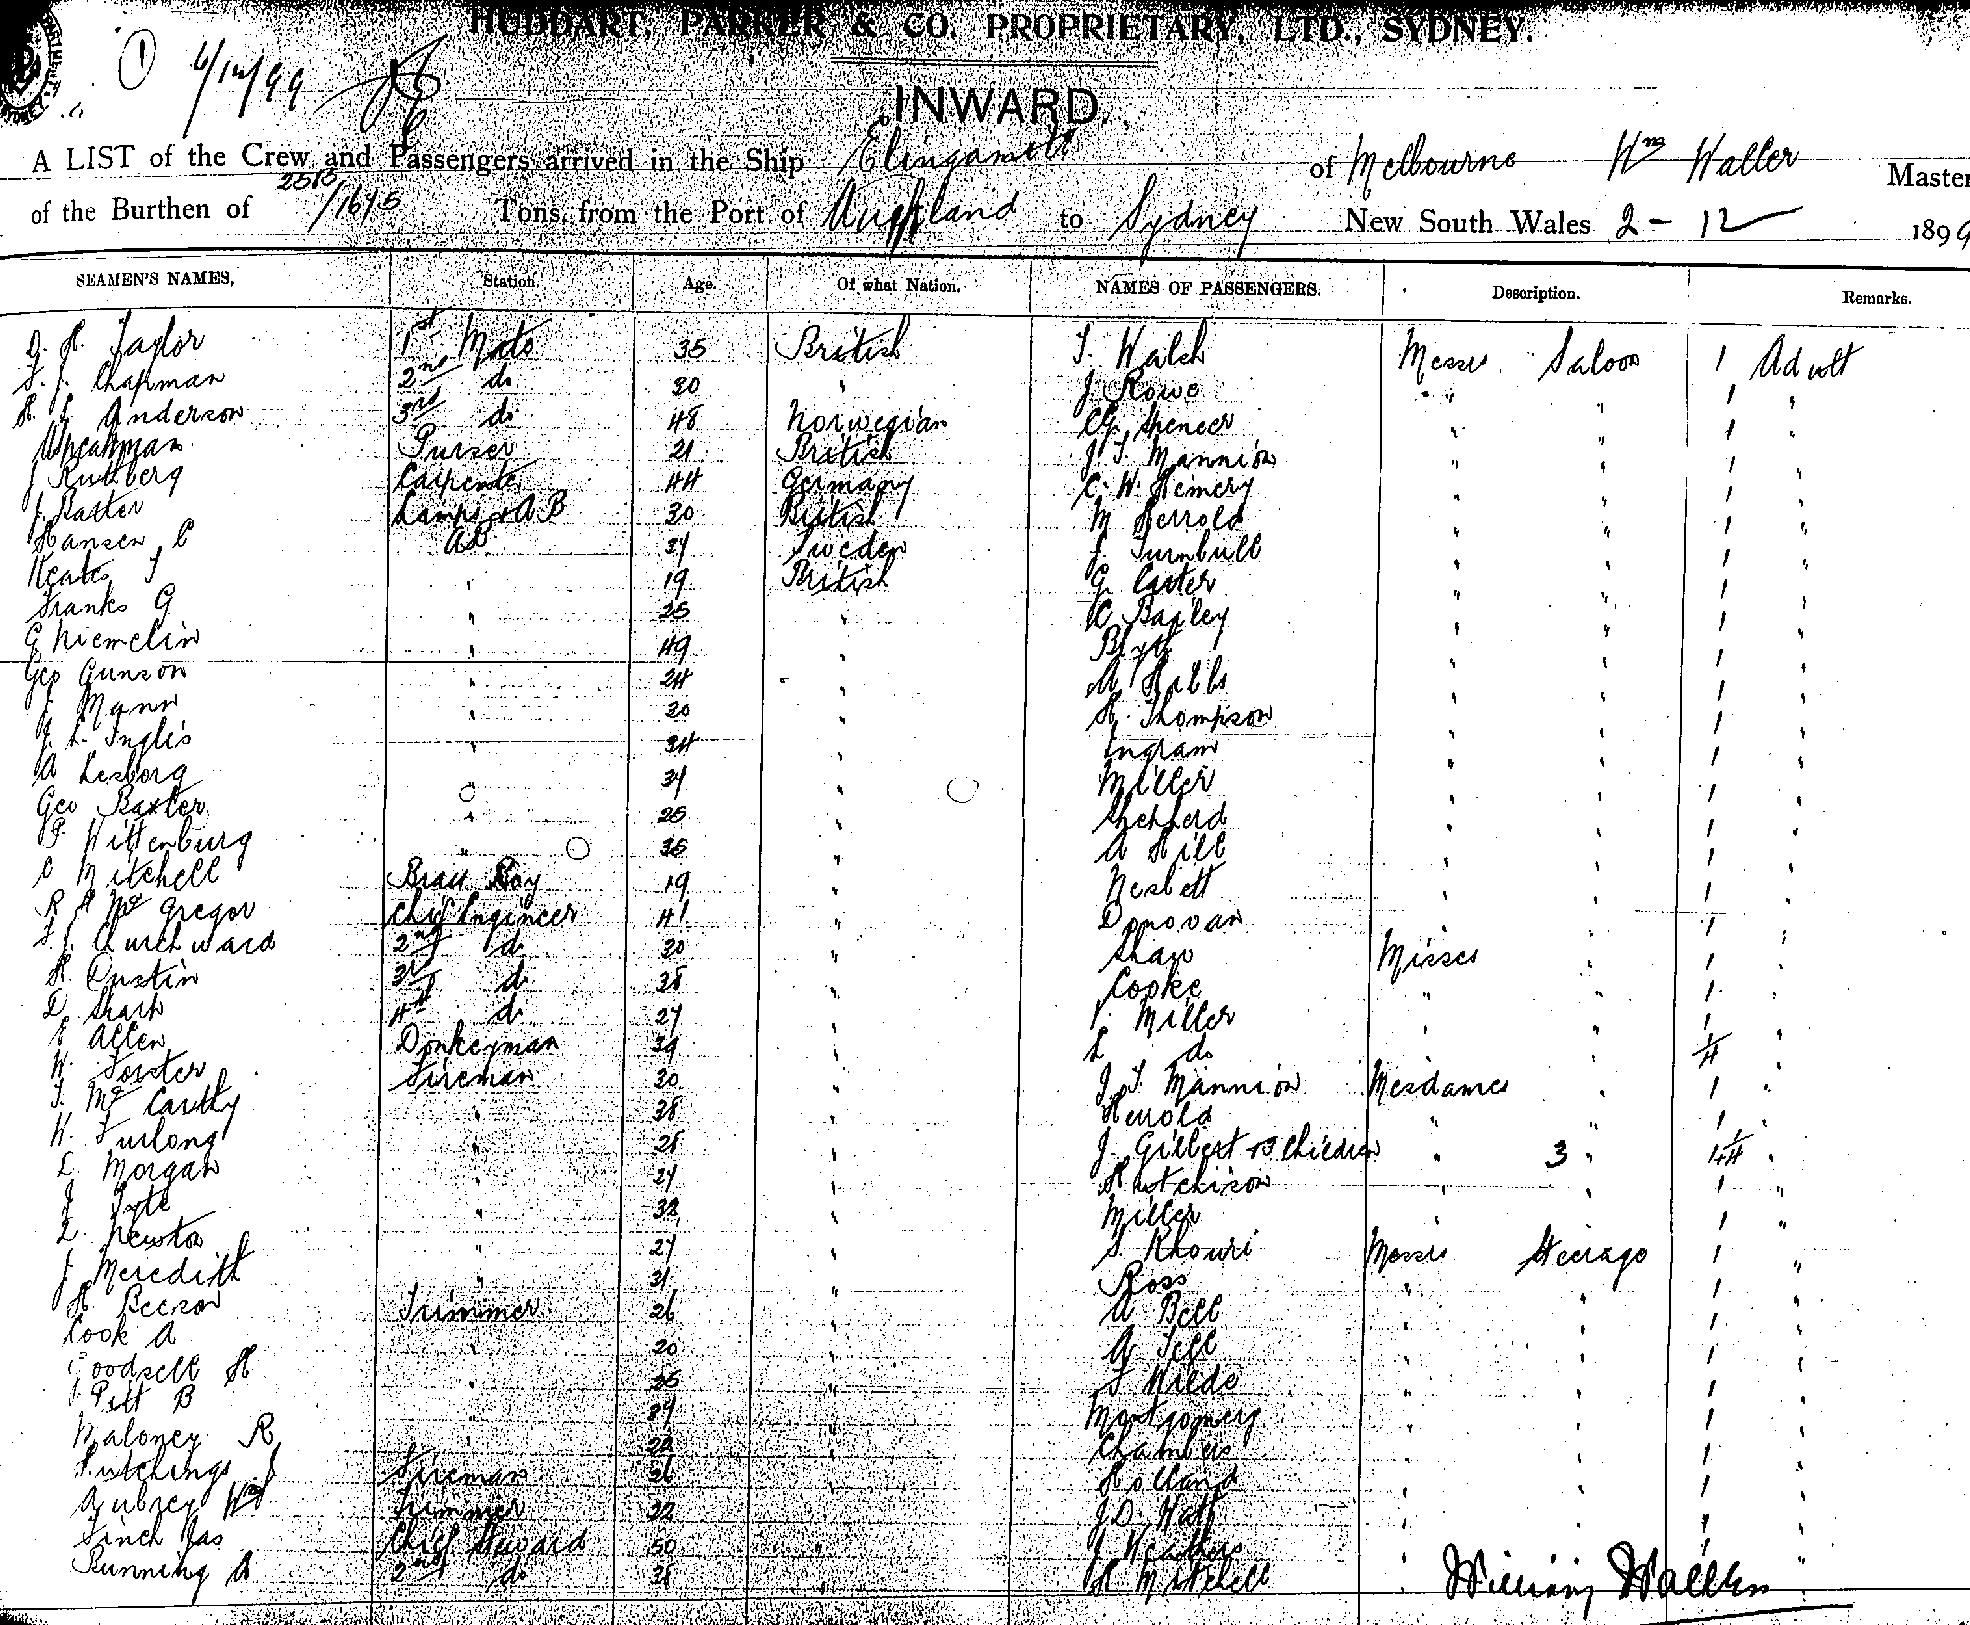 HUDDART, PARKER & CO. PROPRIETARY, LTD., SYDNEY.
1 6/12/99
INWARD.
A LIST of the Crew and Passengers arrived in the Ship Elingamite of Melbourne Wm Waller Master
of the Burthen of 2585/1675 Tons, from the Port of Auckland to Sydney New South Wales 2 - 12 1899
SEAMEN'S NAMES, Station. Age. Of what Nation. NAMES OF PASSENGERS. Description. Remarks.
Taylor 1st Mate 35 British T. Walsh Messrs Saloon 1 Adult
Chapman 2nd do 30 " J Rowe " " 1 "
Anderson 3rd do 48 Norwegian Spencer " " 1 "
Purser 21 British J T. Mannion " " 1
J Rutberg Carpenter 44 Germany C. W. Hemery " " 1 "
J. Baxter Lamps & AB 30 British M Herrold " " 1
Hansen C AB Sweden J. Turnbull " " 1 "
Keats T " 19 British G Carter " " 1 "
Franks G " 25 " Bayley " " 1 "
G Niemelin " 49 " " " 1 "
Geo Gunson " 24 " Hibbs " " 1 "
J Mann " 30 " H. Thompson " " 1 "
J. L. Inglis " 34 " Ingram " " 1 "
A Lesborg " " Miller " " 1 "
Geo Baxter " 25 " Shepherd " " 1 "
P. Wittenburg " 35 " A Hill " " 1 "
C Mitchell Brass Boy 19 " Nesbett " " 1 "
McGregor Chief Engineer 41 " Donovan " " 1 "
Churchward 2nd do 30 " Shaw Misses " 1 "
H. Custin 3rd do 38 " Cooke " " 1 "
D. Shark 4th do 27 " Miller " " 1
Allen Donkeyman 39 " L do " " 1/4 "
W. Forster Fireman 30 " J. T. Mannion Mesdames " 1 "
T. McCarthy " 38 " Herrold " " 1
W. Furlong " 28 " J. Gilbert & 3 Children " 3 " 1 "
L Morgan " " Hutchison " " 1 "
J Pyte " 32 " Miller " " 1 "
L. Newton " 27 " S. Khouri Messrs Steerage 1
J. Meredith " 31 " Ross " 1 "
H. Beeson Trimmer 26 " A Bell " " 1 "
Cook A " 20 " A Tell " " 1 "
Goodsell H " " T Wilde " " 1 "
Pitt B " " Montgomery " " 1 "
Maloney R " " Chambers " " 1 "
Hutchings J Fireman 36 Holland " " 1 "
Aubrey Wm Trimmer 22 J. D. " " 1 "
Finch Jas Chief Steward 50 " " J " "
Running A 2nd do 38 H Mitchell "
William Waller